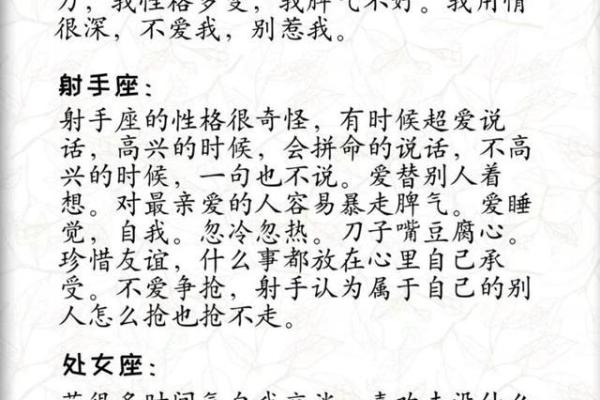 力，我性格多变，我脾气不好。我用情
很深，不爱我，别惹我。
射手座：
射手座的性格很奇怪，有时候超爱说
话，高兴的时候，会拼命的说话，不高
兴的时候，一句也不说。爱替别人着
想。对最亲爱的人容易暴走脾气。爱睡
觉，自我。忽冷忽热。刀子嘴豆腐心。
珍惜友谊，什么事都放在心里自己承
受。不爱争抢，射手认为属于自己的别
人怎么抢也抢不走。
处女座：